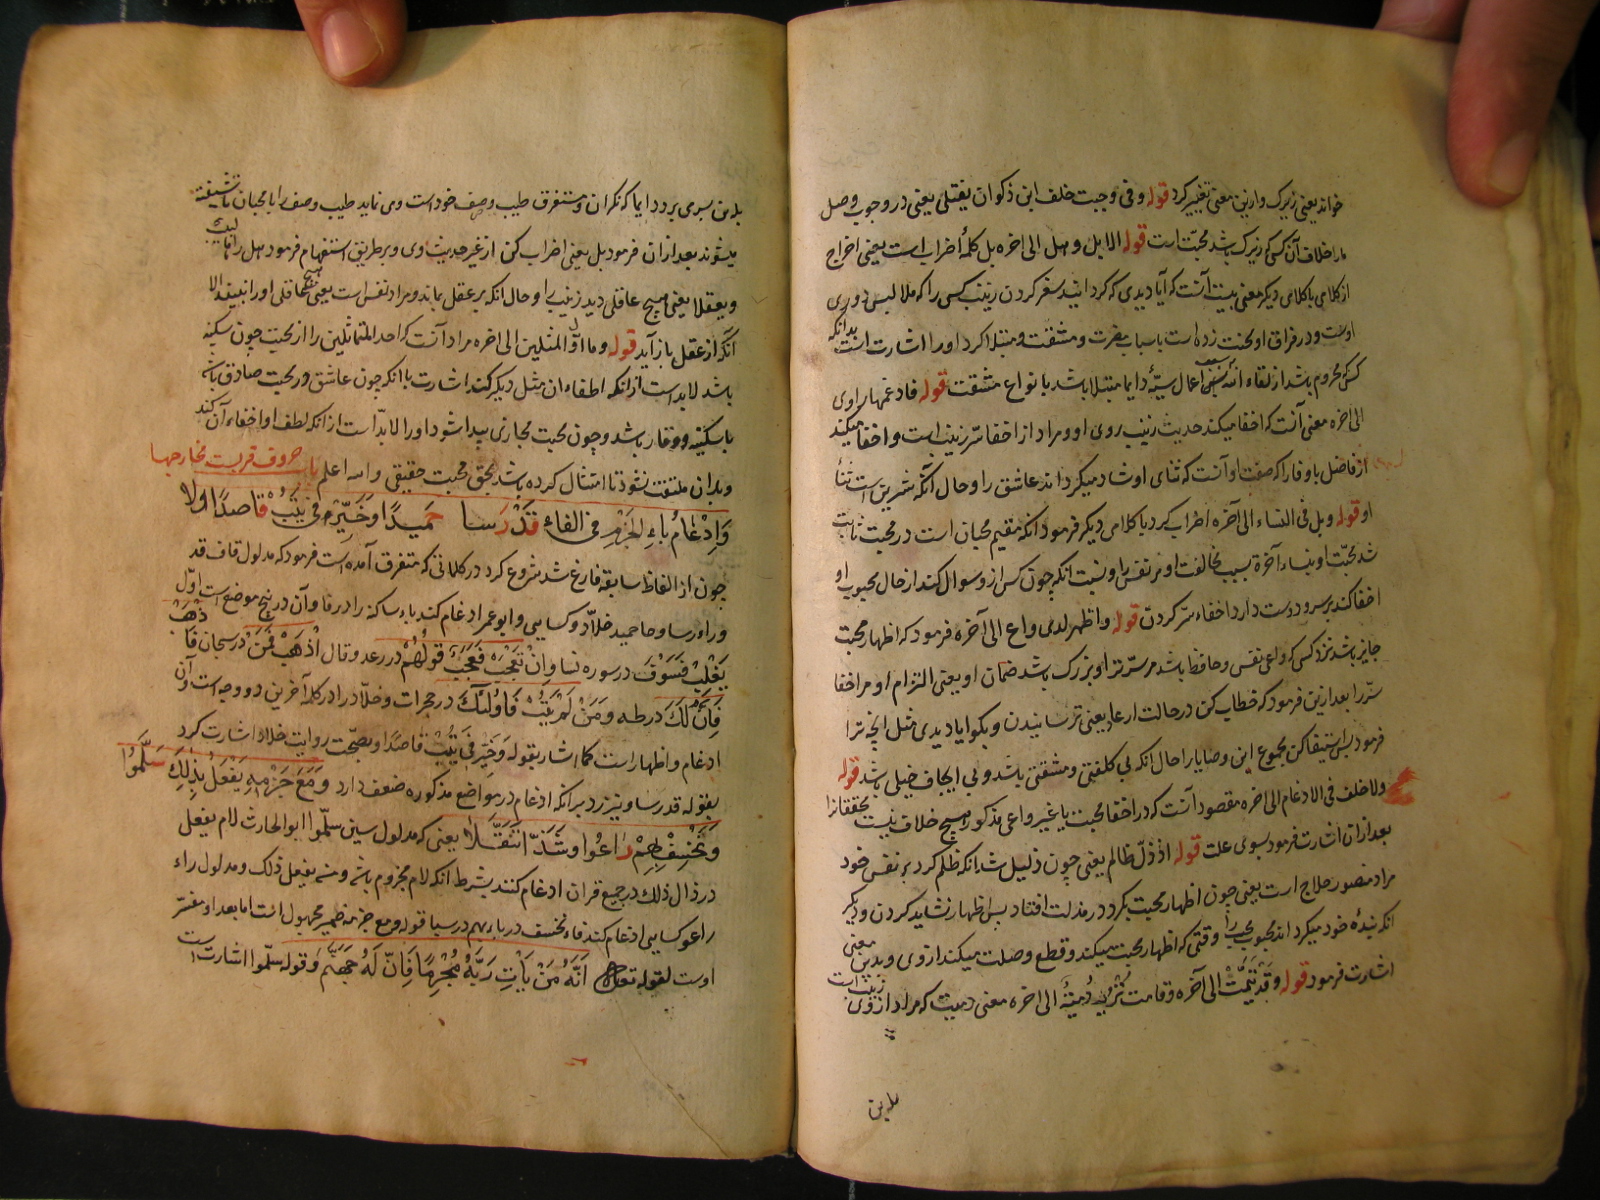 خواند یعنی زیرک و ازین معنی تغییر کرد قوله و فی وجبت خلف ابن ذکوان یفتلی یعنی در وجوب وصل
ما را خلاف آن کسی که زیرک باشد محبّت است قوله الا بل و هل الی اخره بل کلمهٔ اضراب است یعنی اخراج
از کلامی با کلامی دیگر معنی بیت آنست که آیا دیدی که گردانید سفر کردن زینب کسی را که ملابس دوری
اوست و در فراق او محنت زده است باسباب مضرت و مشقت و مبتلا کرد او را اشارت است بدانکه
کسی محروم باشد از لقاء اعمال سیّئه دایما مبتلا باشد با نواع مشقت قوله فادغمها راوی
الی اخره معنی آنست که اخفا میکند حدیث زینب روی او و مراد از اخفا ستر زینب است و اخفا میکند
از فاضل با وقار که صفت او آنست که ثنای او شاد میگرداند عاشق را و حال آنکه شیرین است ثنأ
او قوله و بل فی النساء الی آخره اضراب کرد با کلامی دیگر فرمود انکه مقیم محبان است در محبت ثابت
شد محبّت او بناء آخرة بسبب مخالفت او مر نفس را و نیست انکه چون کس از وسوال کند از حال محبوب او
اخفا کند بر سر و دست دارد اخفاء ستر کردن قوله و اظهر لدی واع الی آخره فرمود که اظهار محبت
جایز باشد نزد کسی که واعی نفس و حافظ باشد مر سرّ ترا و بزرگ باشد ضمان او یعنی التزام او مر اخفا
سرّ را بعد ازین فرمود که خطاب کن در حالت ارعاد یعنی ترسانیدن و بگو ایا دیدی مثل انچه ترا
فرمود پس استیفا کن مجموع این وصایا را حال انکه بی کلفتی و مشقتی باشد و بی ایجاف خیلی باشد قوله
ولا خلف فی الادغام الی اخره مقصود آنست که در اخفا محبت با غیر واعی مذکور هیچ خلاف نیست محققانرا
بعد ازان اشارت فرمود بسوی علت قوله اذ ذلّ ظالم یعنی چون ذلیل شد انکه ظلم کرد بر نفس خود
مراد منصور حلاج است یعنی چون اظهار محبت بکرد در مذلت افتاد پس اظهار نشاید کردن و دیگر
انکه بندهٔ خود میگرداند محبوب محب را وقتی که اظهار محبت میکند و قطع وصلت میکند از وی و بدین معنی
اشارت فرمود قوله و قد تیّمت الی آخره و قامت تریه دمیة الی اخره معنی دمیت که مراد از وی زینب است
بل من
بل من سبری بردد ایما که نکران و متفرق طیب وصف خود است و می نماید طیب وصف را با محبان تا شیفته
میشوند بعد ازان فرمود بل یعنی اضراب کن از غیر حدیث وی و بر طریق استفهام فرمود هل راها لبیب
و یعقلا یعنی هیچ عاقلی دید زینب را و حال انکه بر عقل بماند و مراد نفس است یعنی هیچ عاقلی او را نبیند الا
آنکه از عقل باز آید قوله و ما اوّل المثلین الی اخره مراد آنست که احد المتماثلین را از محبت چون سکینه
باشد لا بد است از انکه اطفاء ان مثل دیگر کند اشارت با انکه چون عاشق در محبت صادق باشد
با سکینه و وقار باشد و چون محبت مجازی پیدا شود او را لا بدّ است از انکه لطف او اخفاء آن کند
و بدان ملتفت نشود تا امتثال کرده باشد بحق محبت حقیقی والله اعلم باب حروف قربت مخارجها
وَاِدْغَامُ بَاءِ الجَزْمِ فی الفاءِ قَدْ رَسا حَمیدًا وَخَیِّرْ فی یَتُبْ قاصدًا ولا
چون از الفاظ سابقه فارغ شد شروع کرد در کلماتی که متفرق آمده است فرمود که مدلول قاف قد
و را و رسا و حا حمید خلاّد و کسایی و ابو عمر ادغام کند باء ساکنه را در فا و آن در پنج موضع است اوّل
یَغْلِبْ فَسَوْفَ در سوره نسا و اِنْ تَعْجَبْ فَعَجَبٌ قَوْلُهُمْ در رعد و قال اذْهَبْ فَمَنْ در سبحان فا ذْهَبْ
فَاِنَّ لَكَ در طه و وَمَنْ لَمْ یَتُبْ فَاُولئِكَ در حجرات و خلاّد را در کلمه آخرین دو وجه است وآن
ادغام و اظهار است کما اشار بقوله وَخَیِّرْ فی یَتُبْ قاصدًا و بصحّت روایت خلاد اشارت کرد
بقوله قد رسا و نیز رد بر آنکه ادغام در مواضع مذکوره ضعف دارد وَمَعَ جَزْمِهِ یَفْعَلْ بِذٰلِكَ سَلَّمُوا
وَنَخْسِفْ بِهِمْ رَاعَوا وشَذَّا تَثَقُّلَا یعنی که مدلول سین سلّموا ابو الحارث لام یفعل
در ذال ذلک در جمیع قران ادغام کنند بشرط انکه لام مجزوم باشد و منه یفعل ذلک و مدلول راء
راعو کسایی ادغام کند فاء نخسف در باء بهم در سبا قوله و مع جزمه ضمیر مجهول است اما بعد او مفسّر
اوست لقوله تعالی اِنَّهُ مَنْ یَأتِ رَبَّهُ مُجْرِمًا فَاِنَّ لَهُ جَهَنَّمَ و قوله سلّموا اشارت است